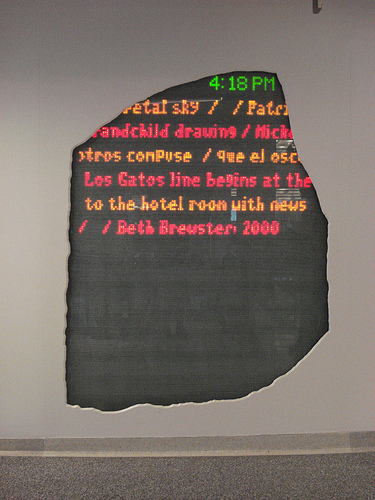 4:18 PM
etal sky / / Patri
andchild drawing / Micke
otros compuse / que el osc
Los Gatos line begins at the
to the hotel room with news
/ / Beth Brewster, 2000